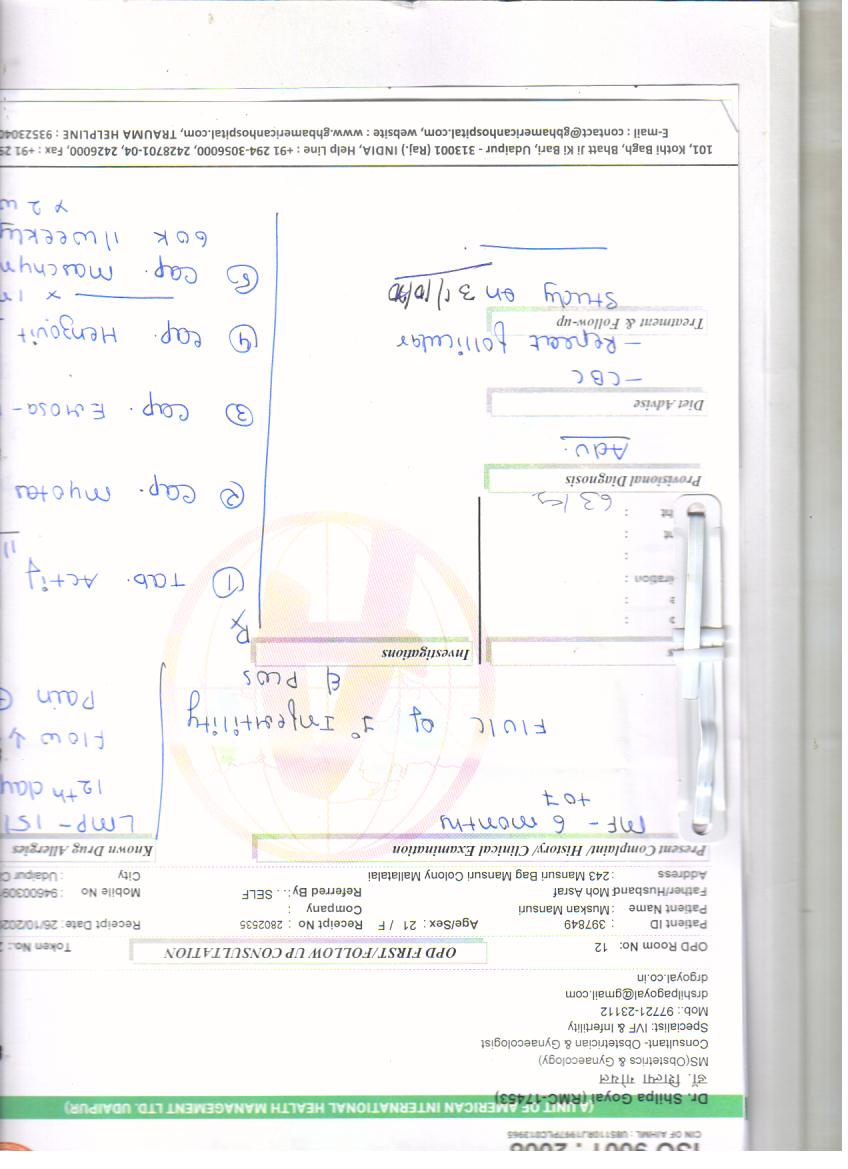 ISO 9001 : 2008
CIN OF AIHML : U85110RJ1997PLC013965
(A UNIT OF AMERICAN INTERNATIONAL HEALTH MANAGEMENT LTD. UDAIPUR)
Dr. Shilpa Goyal (RMC-17453)
डॉ. शिल्पा गोयल
MS(Obstetrics & Gynaecology)
Consultant- Obstetrician & Gynaecologist
Specialist: IVF & Infertility
Mob.: 97721-23112
drshilpagoyal@gmail.com
drgoyal.co.in
OPD Room No: 12
OPD FIRST/FOLLOW UP CONSULTATION
Token No.:
Patient ID : 397849
Age/Sex : 21 / F
Receipt No : 2802535
Receipt Date: 26/10/202
Patient Name : Muskan Mansuri
Company :
Father/Husband Moh Asraf
Referred By: . . SELF
Mobile No : 94600309
Address : 243 Mansuri Bag Mansuri Colony Mallatalai
City : Udaipur C
Present Complaint/ History/ Clinical Examination
Known Drug Allergies
MF - 6 months
LMP - 15/
12th day
Flow ↓
Pain
F/U/C of 1° Infertility
Investigations
Rx
① Tab. Actif
63 kg
② Cap. Myotas
Provisional Diagnosis
Adv.
Diet Advise
③ Cap. Emosa-
- CBC
- Repeat follicular
④ Cap. Hengovit
Treatment & Follow-up
study on 31/10/20
⑤ Cap. Mascnym
60K 1/weekly
x 2 w
101, Kothi Bagh, Bhatt Ji Ki Bari, Udaipur - 313001 (Raj.) INDIA, Help Line : +91 294-3056000, 2428701-04, 2426000, Fax : +91 29
E-mail : contact@gbhamericanhospital.com, website : www.gbhamericanhospital.com, TRAUMA HELPLINE : 9352304